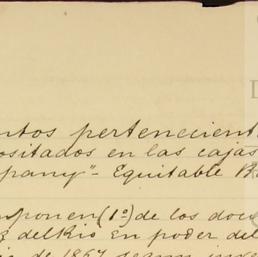 ntos pertenecient
ositados en las cajas
pany"- Equitable B
sponen (1º) de los doc
z del Rio en poder del
de 1867 segun inve